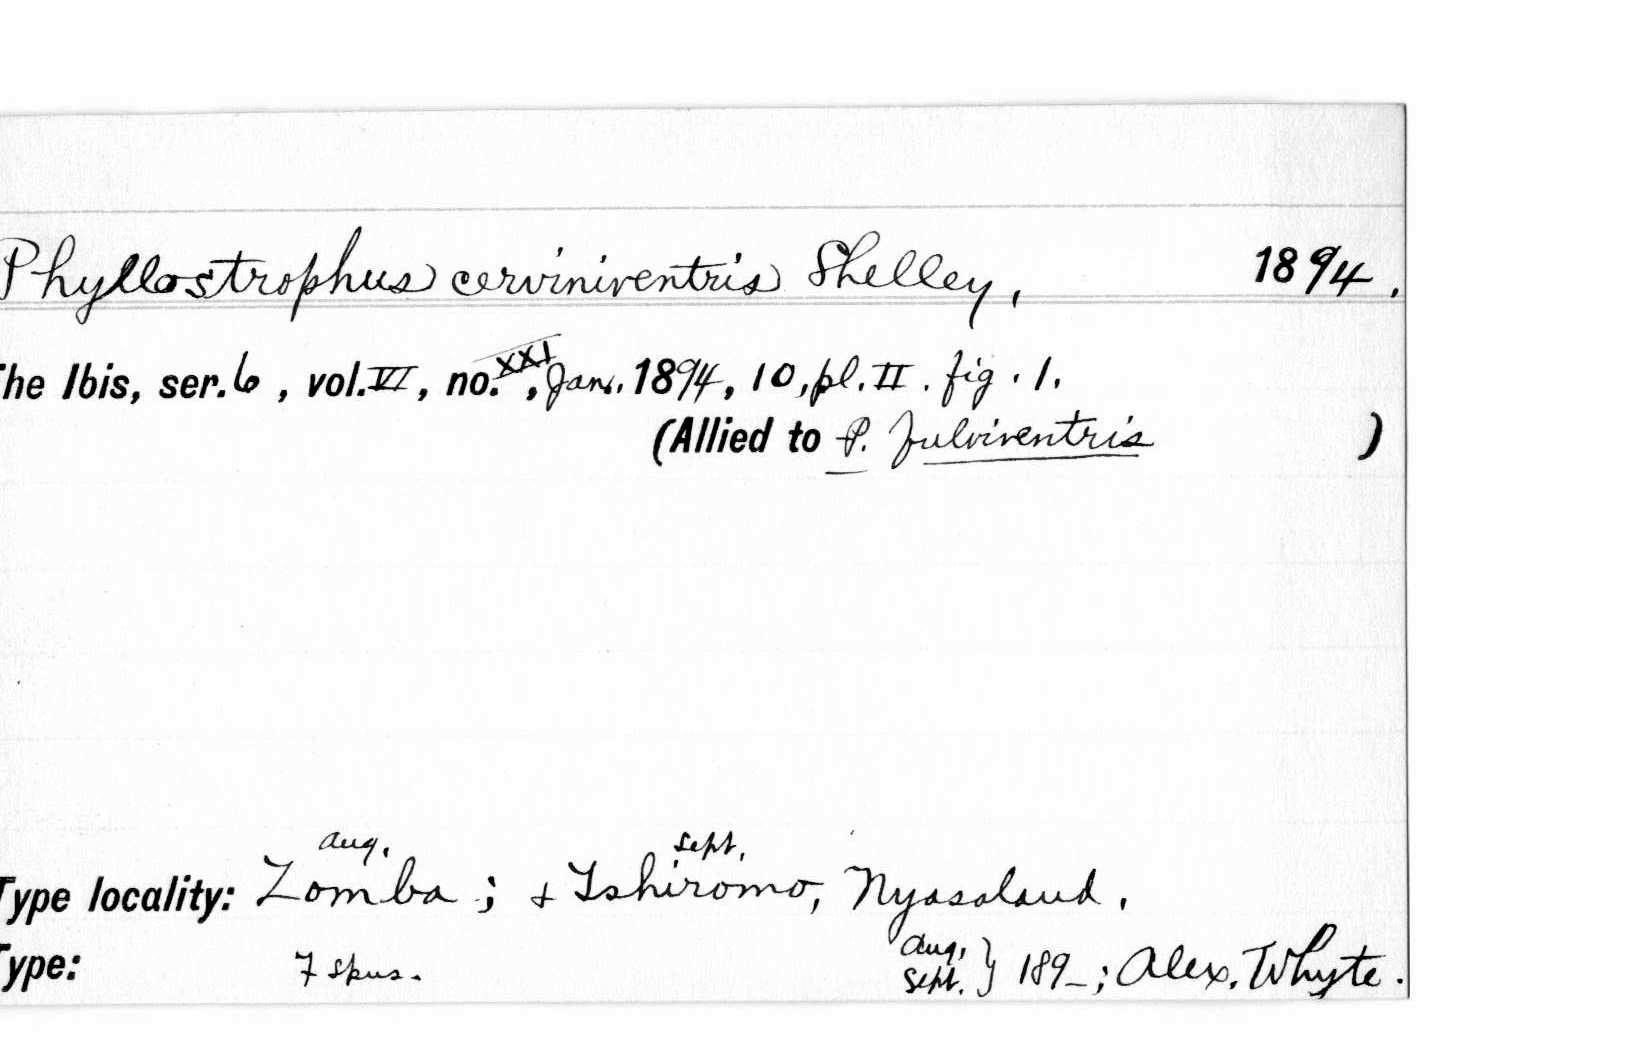 Phyllostrophus cerviniventris Shelley, 1894.
The Ibis, ser. 6, vol. VI, no. XXI, Jan. 1894, 10, pl. II. fig. 1.
(Allied to P. fulviventris )
Aug. Sept.
Type locality: Zomba; + Tshiromo, Nyasaland.
Type: 7 spms. Aug. Sept. } 189_; Alex. Whyte.